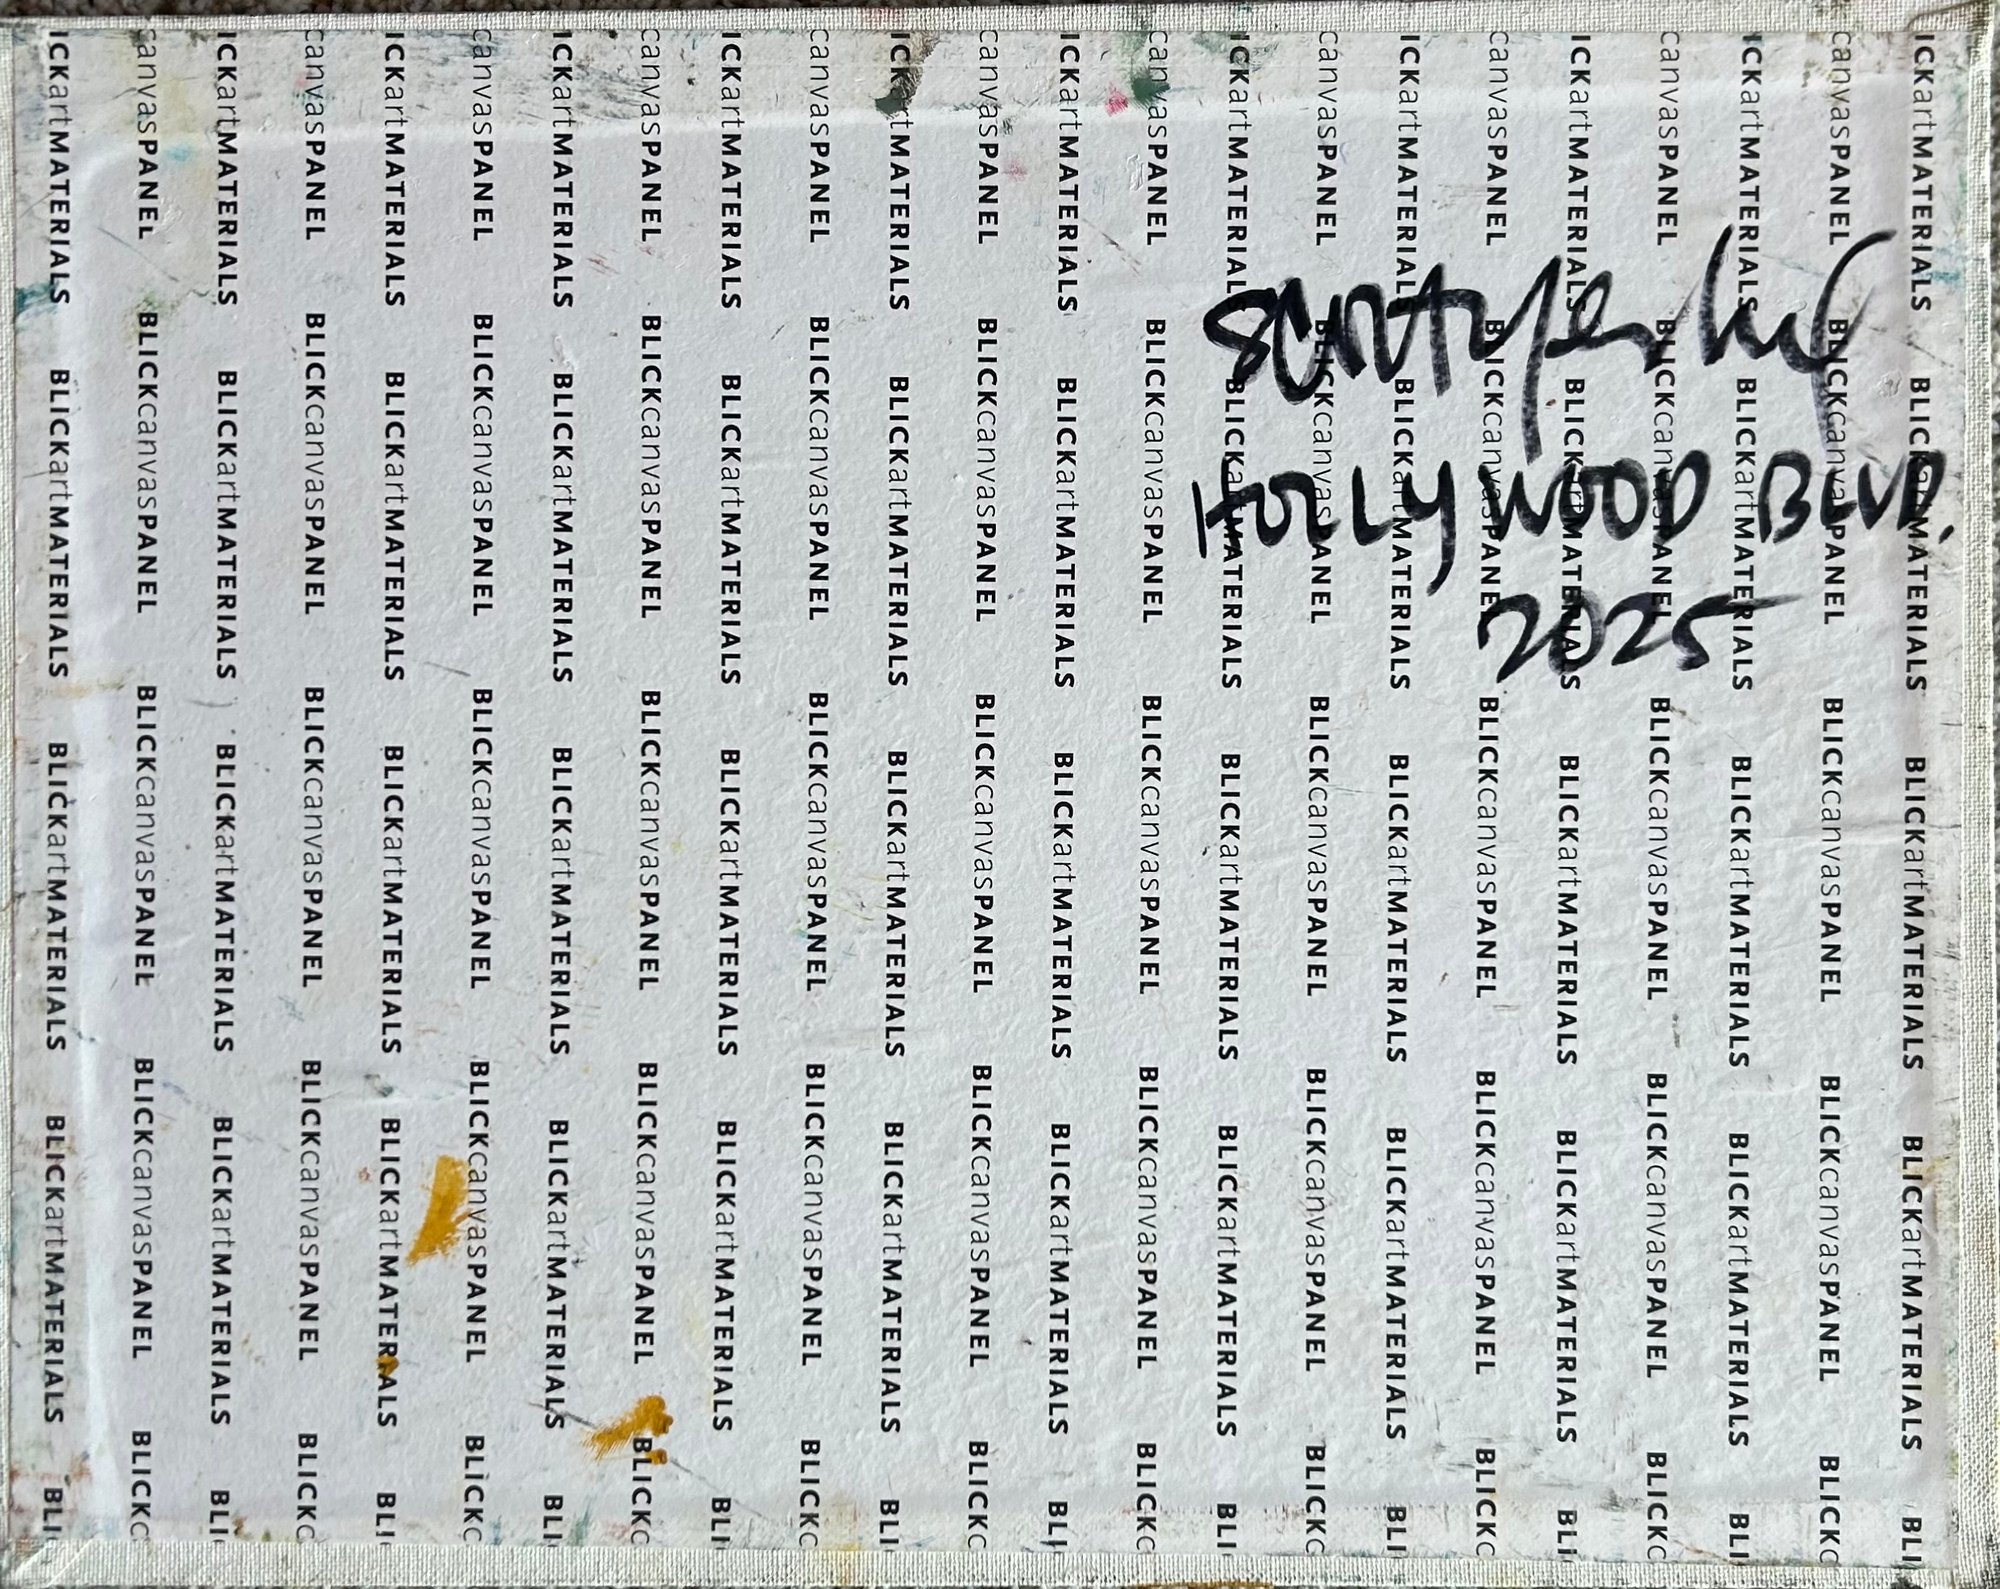 HOLLYWOOD BLVD.
2025
ICKartMATERIALS BLICKartMATERIALS BLICKartMATERIALS BLICKartMATERIALS BLI
canvasPANEL BLICKcanvasPANEL BLICKcanvasPANEL BLICKcanvasPANEL BLICKc
ICKartMATERIALS BLICKartMATERIALS BLICKartMATERIALS BLICKartMATERIALS BLI
canvasPANEL BLICKcanvasPANEL BLICKcanvasPANEL BLICKcanvasPANEL BLICKc
ICKartMATERIALS BLICKartMATERIALS BLICKartMATERIALS BLICKartMATERIALS BLI
canvasPANEL BLICKcanvasPANEL BLICKcanvasPANEL BLICKcanvasPANEL BLICKc
ICKartMATERIALS BLICKartMATERIALS BLICKartMATERIALS BLICKartMATERIALS BLI
canvasPANEL BLICKcanvasPANEL BLICKcanvasPANEL BLICKcanvasPANEL BLICKc
ICKartMATERIALS BLICKartMATERIALS BLICKartMATERIALS BLICKartMATERIALS BLI
canvasPANEL BLICKcanvasPANEL BLICKcanvasPANEL BLICKcanvasPANEL BLICKc
ICKartMATERIALS BLICKartMATERIALS BLICKartMATERIALS BLICKartMATERIALS BLI
canvasPANEL BLICKcanvasPANEL BLICKcanvasPANEL BLICKcanvasPANEL BLICKc
ICKartMATERIALS BLICKartMATERIALS BLICKartMATERIALS BLICKartMATERIALS BLI
canvasPANEL BLICKcanvasPANEL BLICKcanvasPANEL BLICKcanvasPANEL BLICKc
ICKartMATERIALS BLICKartMATERIALS BLICKartMATERIALS BLICKartMATERIALS BLI
canvasPANEL BLICKcanvasPANEL BLICKcanvasPANEL BLICKcanvasPANEL BLICKc
ICKartMATERIALS BLICKartMATERIALS BLICKartMATERIALS BLICKartMATERIALS BLI
canvasPANEL BLICKcanvasPANEL BLICKcanvasPANEL BLICKcanvasPANEL BLICKc
ICKartMATERIALS BLICKartMATERIALS BLICKartMATERIALS BLICKartMATERIALS BLI
canvasPANEL BLICKcanvasPANEL BLICKcanvasPANEL BLICKcanvasPANEL BLICKc
ICKartMATERIALS BLICKartMATERIALS BLICKartMATERIALS BLICKartMATERIALS BLI
canvasPANEL BLICKcanvasPANEL BLICKcanvasPANEL BLICKcanvasPANEL BLICKc
ICKartMATERIALS BLICKartMATERIALS BLICKartMATERIALS BLICKartMATERIALS BLI